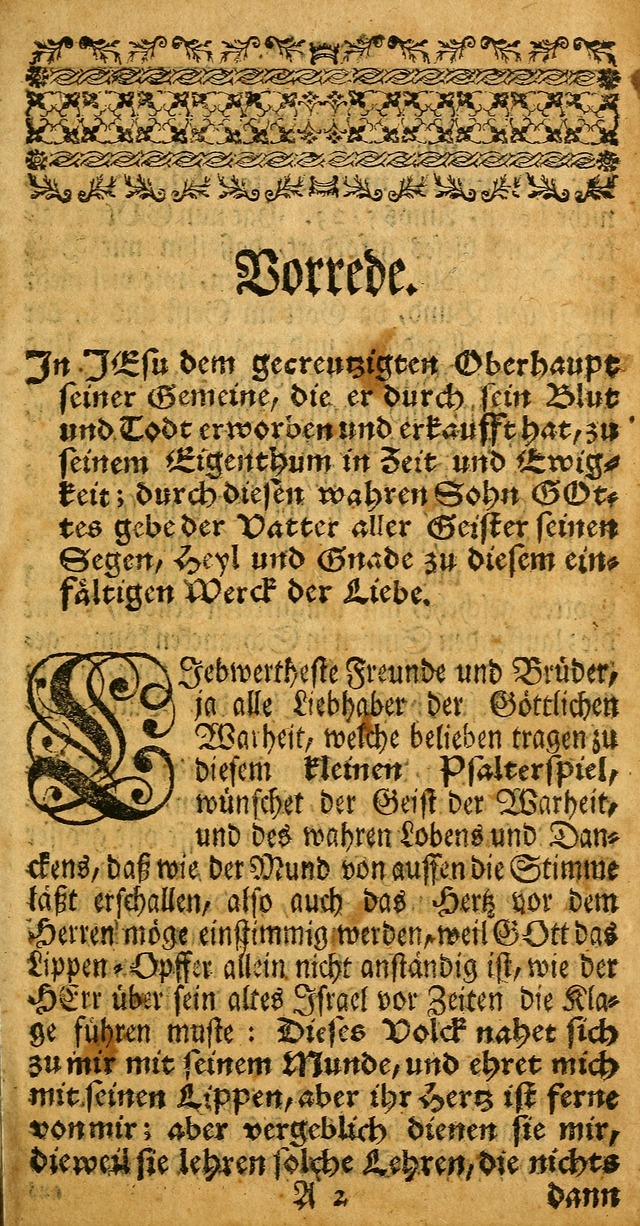 Vorrede.
In JEsu dem gecreutzigten Oberhaupt
seiner Gemeine, die er durch sein Blut
und Todt erworben und erkaufft hat, zu
seinem Eigenthum in Zeit und Ewig-
keit; durch diesen wahren Sohn GOt-
tes gebe der Vatter aller Geister seinen
Segen, Heyl und Gnade zu diesem ein-
fältigen Werck der Liebe.
LJebwertheste Freunde und Brüder,
ja alle Liebhaber der Göttlichen
Warheit, welche belieben tragen zu
diesem kleinen Psalterspiel,
wünschet der Geist der Warheit,
und des wahren Lobens und Dan-
ckens, daß wie der Mund von aussen die Stimme
läßt erschallen, also auch das Hertz vor dem
Herren möge einstimmig werden, weil GOtt das
Lippen-Opffer allein nicht anständig ist, wie der
HErr über sein altes Israel vor Zeiten die Kla-
ge führen muste: Dieses Volck nahet sich
zu mir mit seinem Munde, und ehret mich
mit seinen Lippen, aber ihr Hertz ist ferne
von mir; aber vergeblich dienen sie mir,
dieweil sie lehren solche Lehren, die nichts
A 2 dann